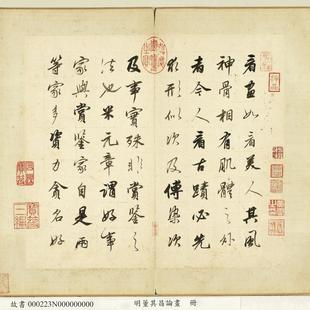 看畫如看美人其風
神骨相有肌體之外
者今人看古蹟必先
求形似次及傅染次
及事實殊非賞鑒之
法也米元章謂好事
家與賞鑒家自是兩
等家多資力貪名好
故書 000223N000000000 明董其昌論畫 冊